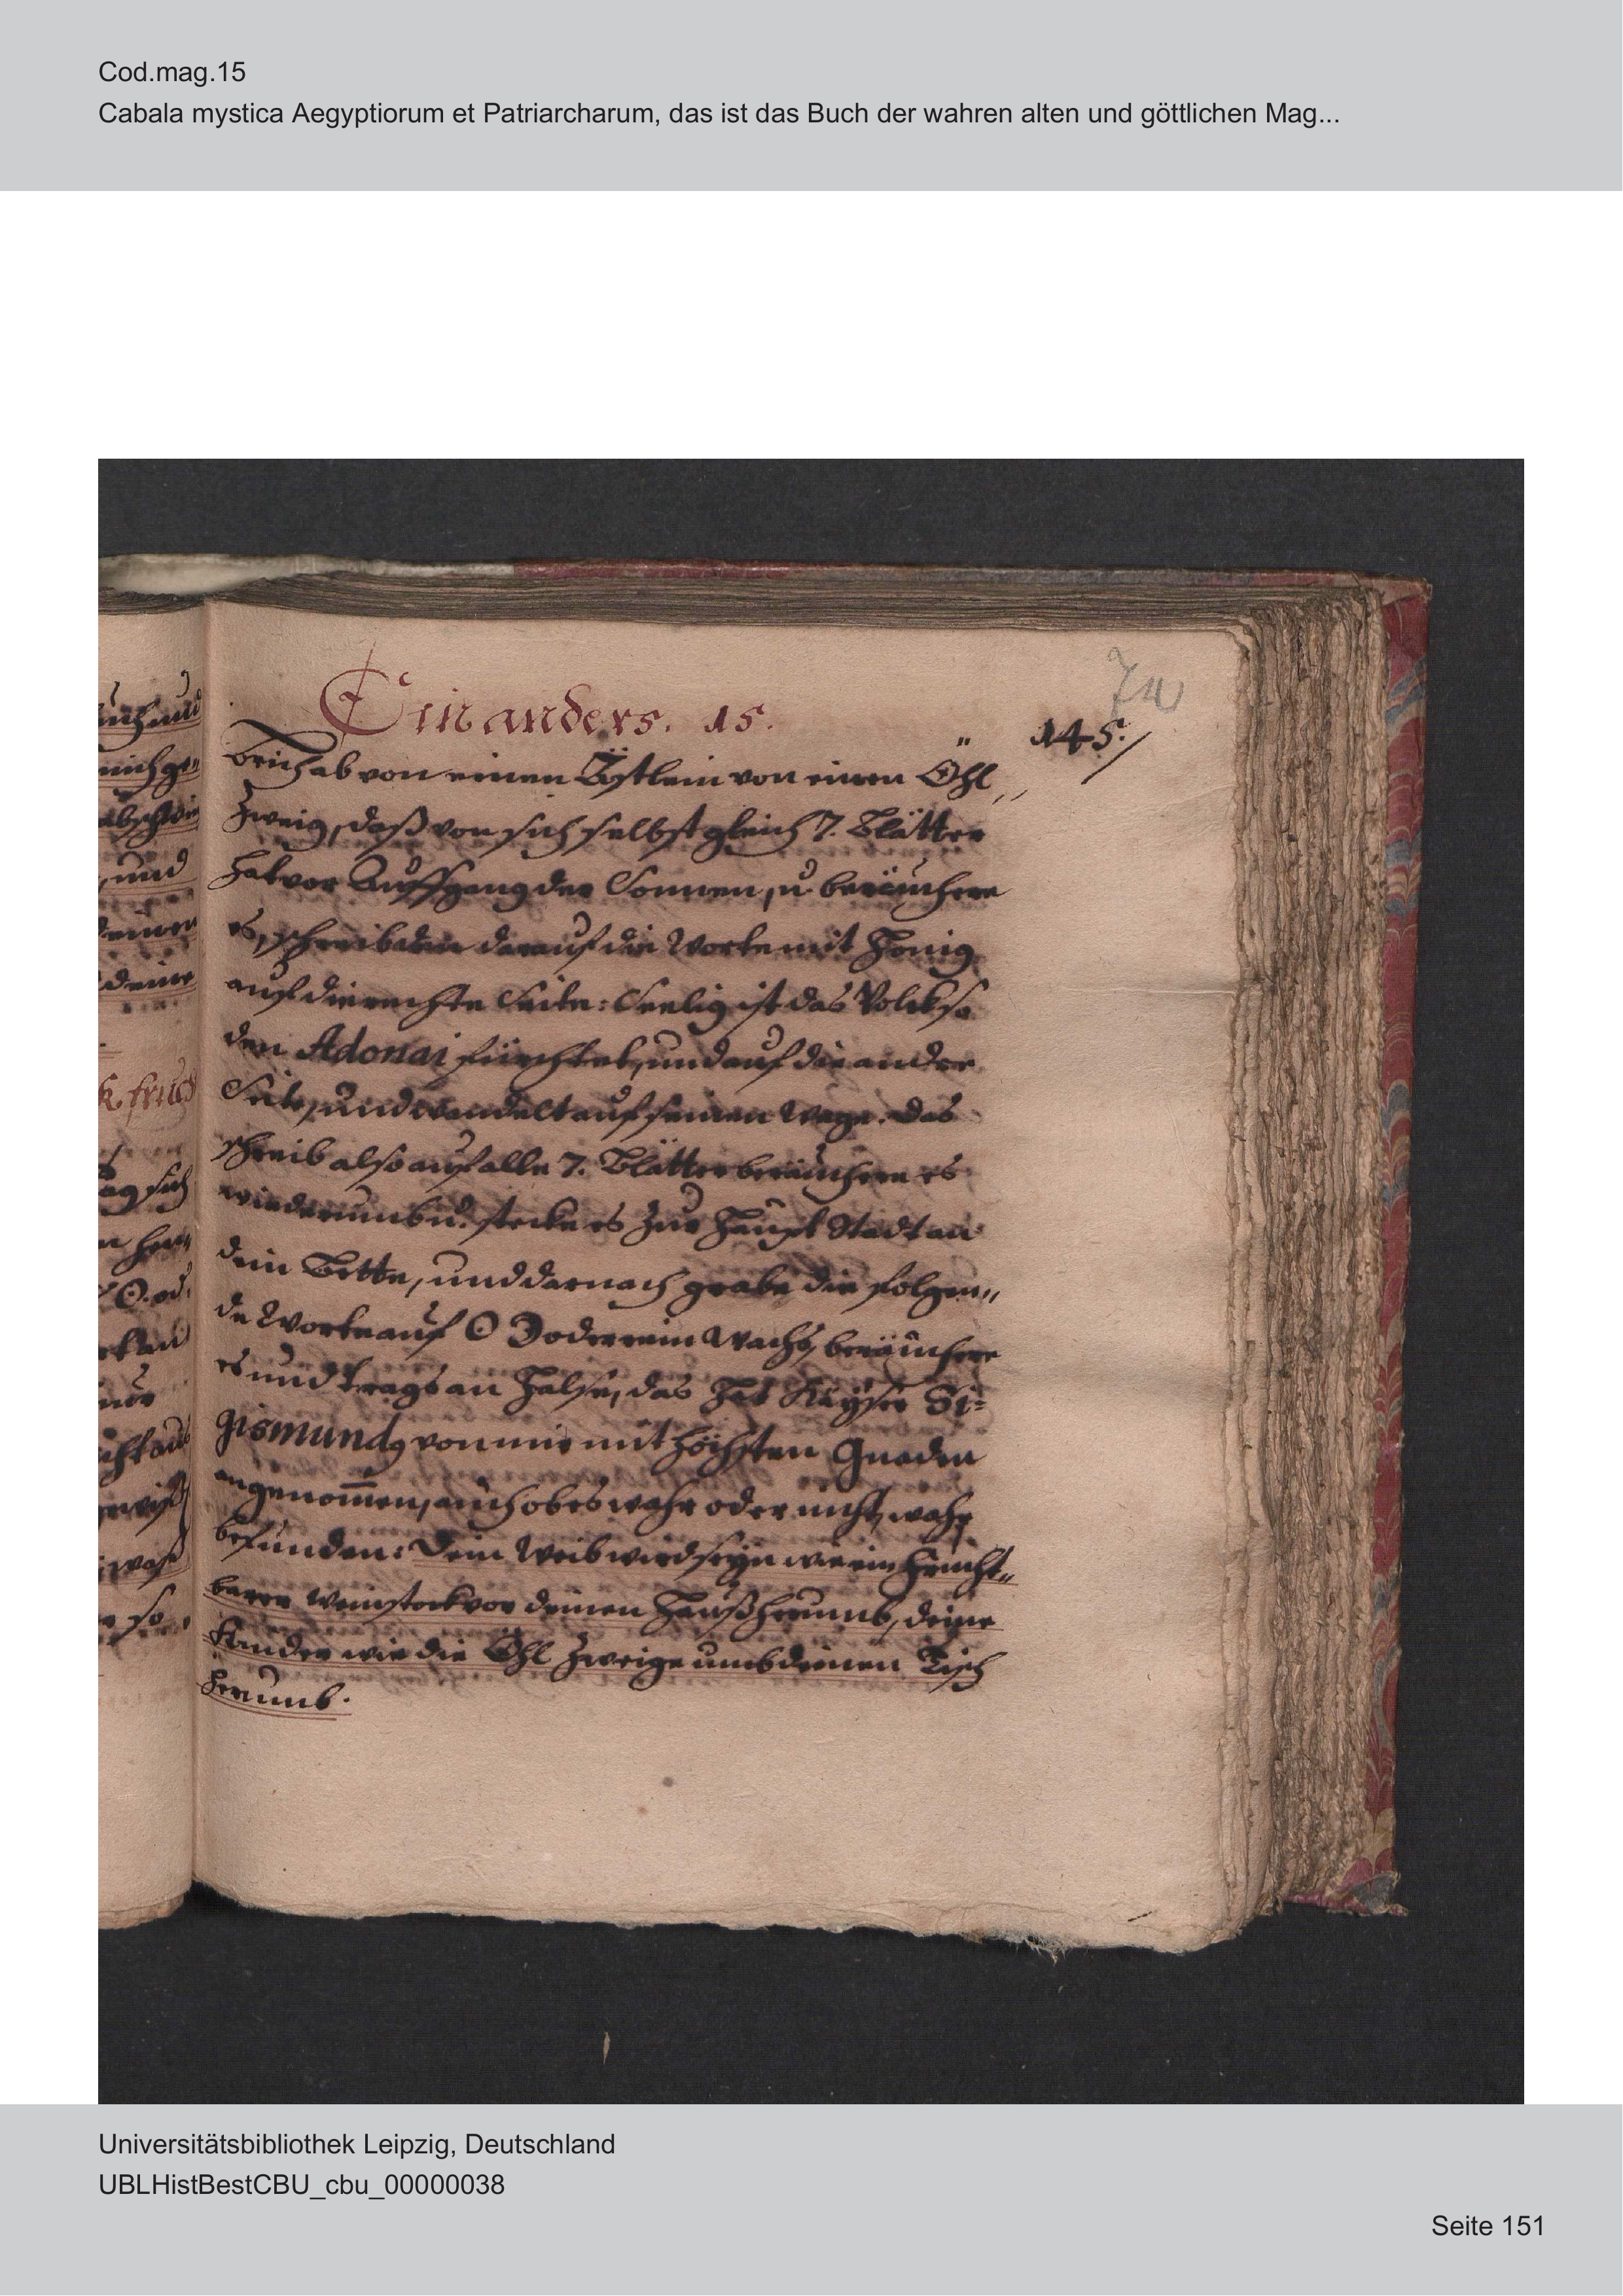 Cod.mag.15
Cabala mystica Aegyptiorum et Patriarcharum, das ist das Buch der wahren alten und göttlichen Mag...
Ein anders. 15.
145.
Brich ab von einen Ästlein von einen Öhl„
Zweig, daß von sich selbst gleich 7. Blätter
hat vor Auffgang der Sonnen, u. beräuchere
es, schreib darauf die Worte mit Honig
auf die rechte Seite: Seelig ist das Volck so
den Adonai fürchtet, und auf die ander
Seite, und wandelt auf seinen Wege. Das
schreib also auf alle 7. Blätter beräuchere es
wiederumb u. stecke es zur Haupt Stadt an
dein Bette, und darnach grabe die folgen„
de Worte auf ☉ ☽ oder rein Wachs, beräuchere
es und trags an Halse, das hat Kaÿser Si=
gismundꝰ von mir mit höchsten Gnaden
angenom̄en, auch ob es wahr oder nicht, wahr
befunden: Dein Weib wird seyn wie ein frucht„
barer Weinstock vor deinen Hauß herumb, deine
Kinder wie die Öhl Zweige umb deinen Tisch
herumb.
Universitätsbibliothek Leipzig, Deutschland
UBLHistBestCBU_cbu_00000038
Seite 151